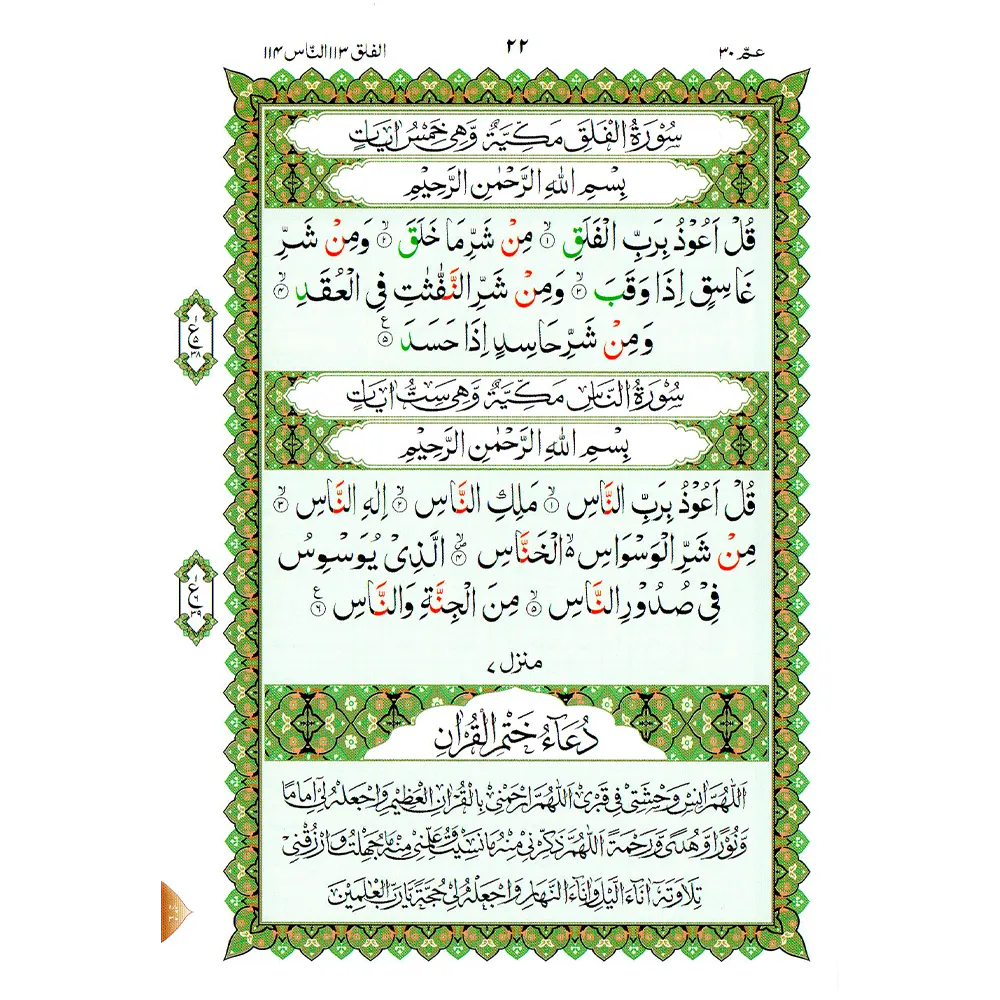 عمّ ۳۰
۲۲
الفلق ۱۱۳ النّاس ۱۱۴
سُوْرَةُ الْفَلَقِ مَكِّيَّةٌ وَّهِىَ خَمْسُ اٰيَاتٍ
بِسْمِ اللّٰهِ الرَّحْمٰنِ الرَّحِيْمِ
قُلْ اَعُوْذُ بِرَبِّ الْفَلَقِ ۙ۱ مِنْ شَرِّ مَا خَلَقَ ۙ۲ وَمِنْ شَرِّ
غَاسِقٍ اِذَا وَقَبَ ۙ۳ وَمِنْ شَرِّ النَّفّٰثٰتِ فِى الْعُقَدِ ۙ۴
وَمِنْ شَرِّ حَاسِدٍ اِذَا حَسَدَ ۵ ع
ع ۱ ۵ ۳۸
سُوْرَةُ النَّاسِ مَكِّيَّةٌ وَّهِىَ سِتُّ اٰيَاتٍ
بِسْمِ اللّٰهِ الرَّحْمٰنِ الرَّحِيْمِ
قُلْ اَعُوْذُ بِرَبِّ النَّاسِ ۙ۱ مَلِكِ النَّاسِ ۙ۲ اِلٰهِ النَّاسِ ۙ۳
مِنْ شَرِّ الْوَسْوَاسِ ەۙ الْخَنَّاسِ ۴ۙ الَّذِىْ يُوَسْوِسُ
فِىْ صُدُوْرِ النَّاسِ ۙ۵ مِنَ الْجِنَّةِ وَالنَّاسِ ۶ ع
ع ۱ ۶ ۳۹
منزل ۷
دُعَآءُ خَتْمِ الْقُرْاٰنِ
اَللّٰهُمَّ اٰنِسْ وَحْشَتِىْ فِىْ قَبْرِىْ اَللّٰهُمَّ ارْحَمْنِىْ بِالْقُرْاٰنِ الْعَظِيْمِ وَاجْعَلْهُ لِىْ اِمَامًا
وَّنُوْرًا وَّهُدًى وَّرَحْمَةً اَللّٰهُمَّ ذَكِّرْنِىْ مِنْهُ مَا نَسِيْتُ وَعَلِّمْنِىْ مِنْهُ مَا جَهِلْتُ وَارْزُقْنِىْ
تِلَاوَتَهٗ اٰنَآءَ الَّيْلِ وَاٰنَآءَ النَّهَارِ وَاجْعَلْهُ لِىْ حُجَّةً يَّارَبَّ الْعٰلَمِيْنَ